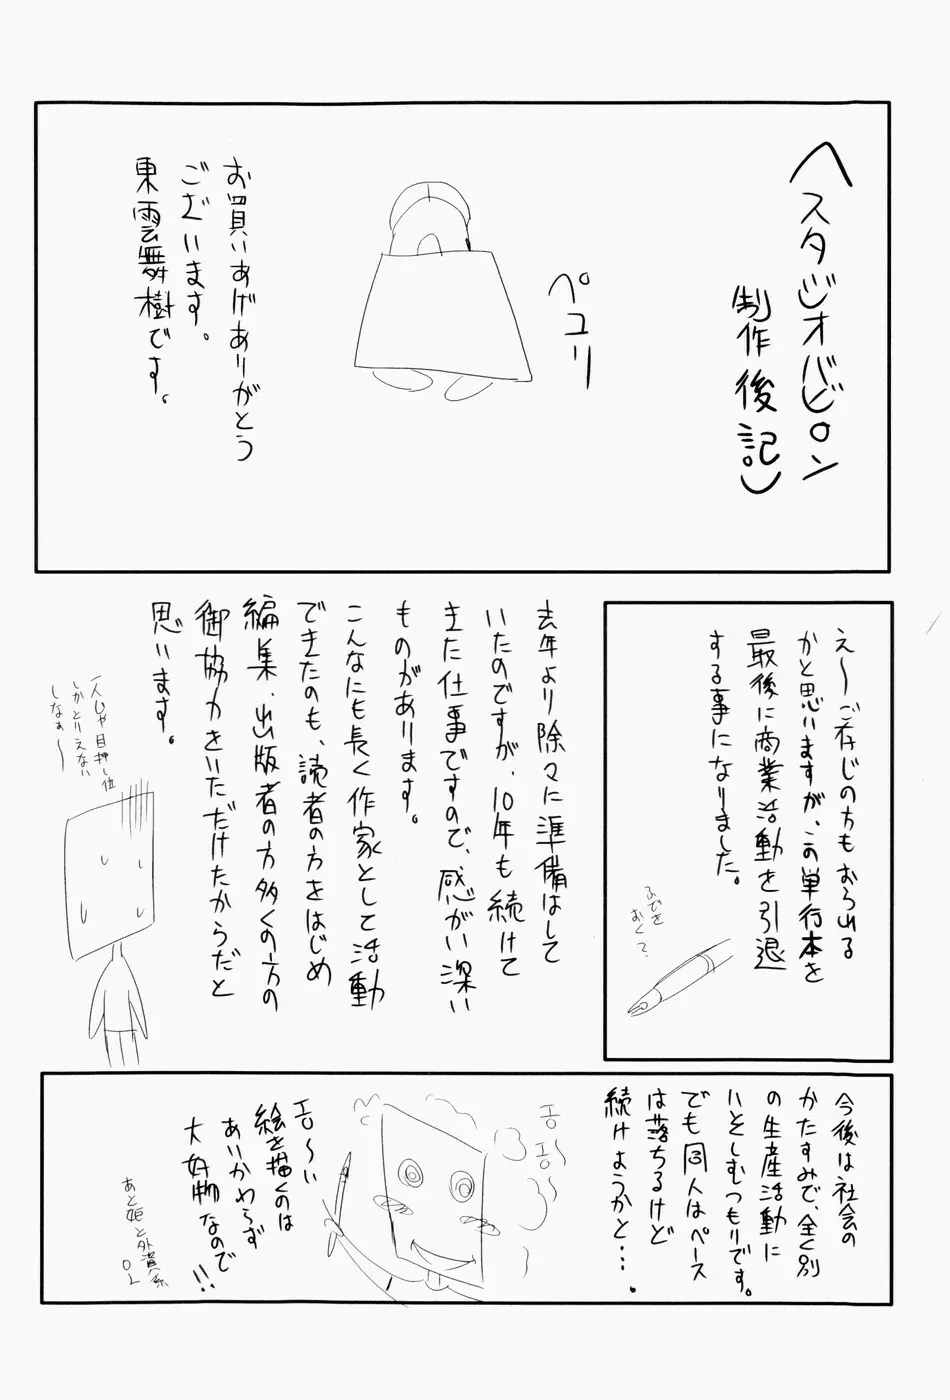 スタジオバビロン
制作後記
ペユリ
お買いあげありがとう
ございます。
東雲舞樹です。
え〜ご存じの方もおられる
かと思いますが、この単行本を
最後に商業活動を引退
する事になりました。
ふでを
おく?
去年より除々に準備はして
いたのですが、10年も続けて
きた仕事ですので、感がい深い
ものがあります。
こんなにも長く作家として活動
できたのも、読者の方をはじめ
編集、出版者の方多くの方の
御協力をいただけたからだと
思います。
一人じゃ目押し位
しかとりえない
しなぁ〜
今後は社会の
かたすみで、全く別
の生産活動に
いそしむつもりです。
でも同人はペース
は落ちるけど
続けようかと…。
エ
エ〜
エ〜い
絵を描くのは
あいかわらず
大好物なので
!!
あと姫と外資系
OL